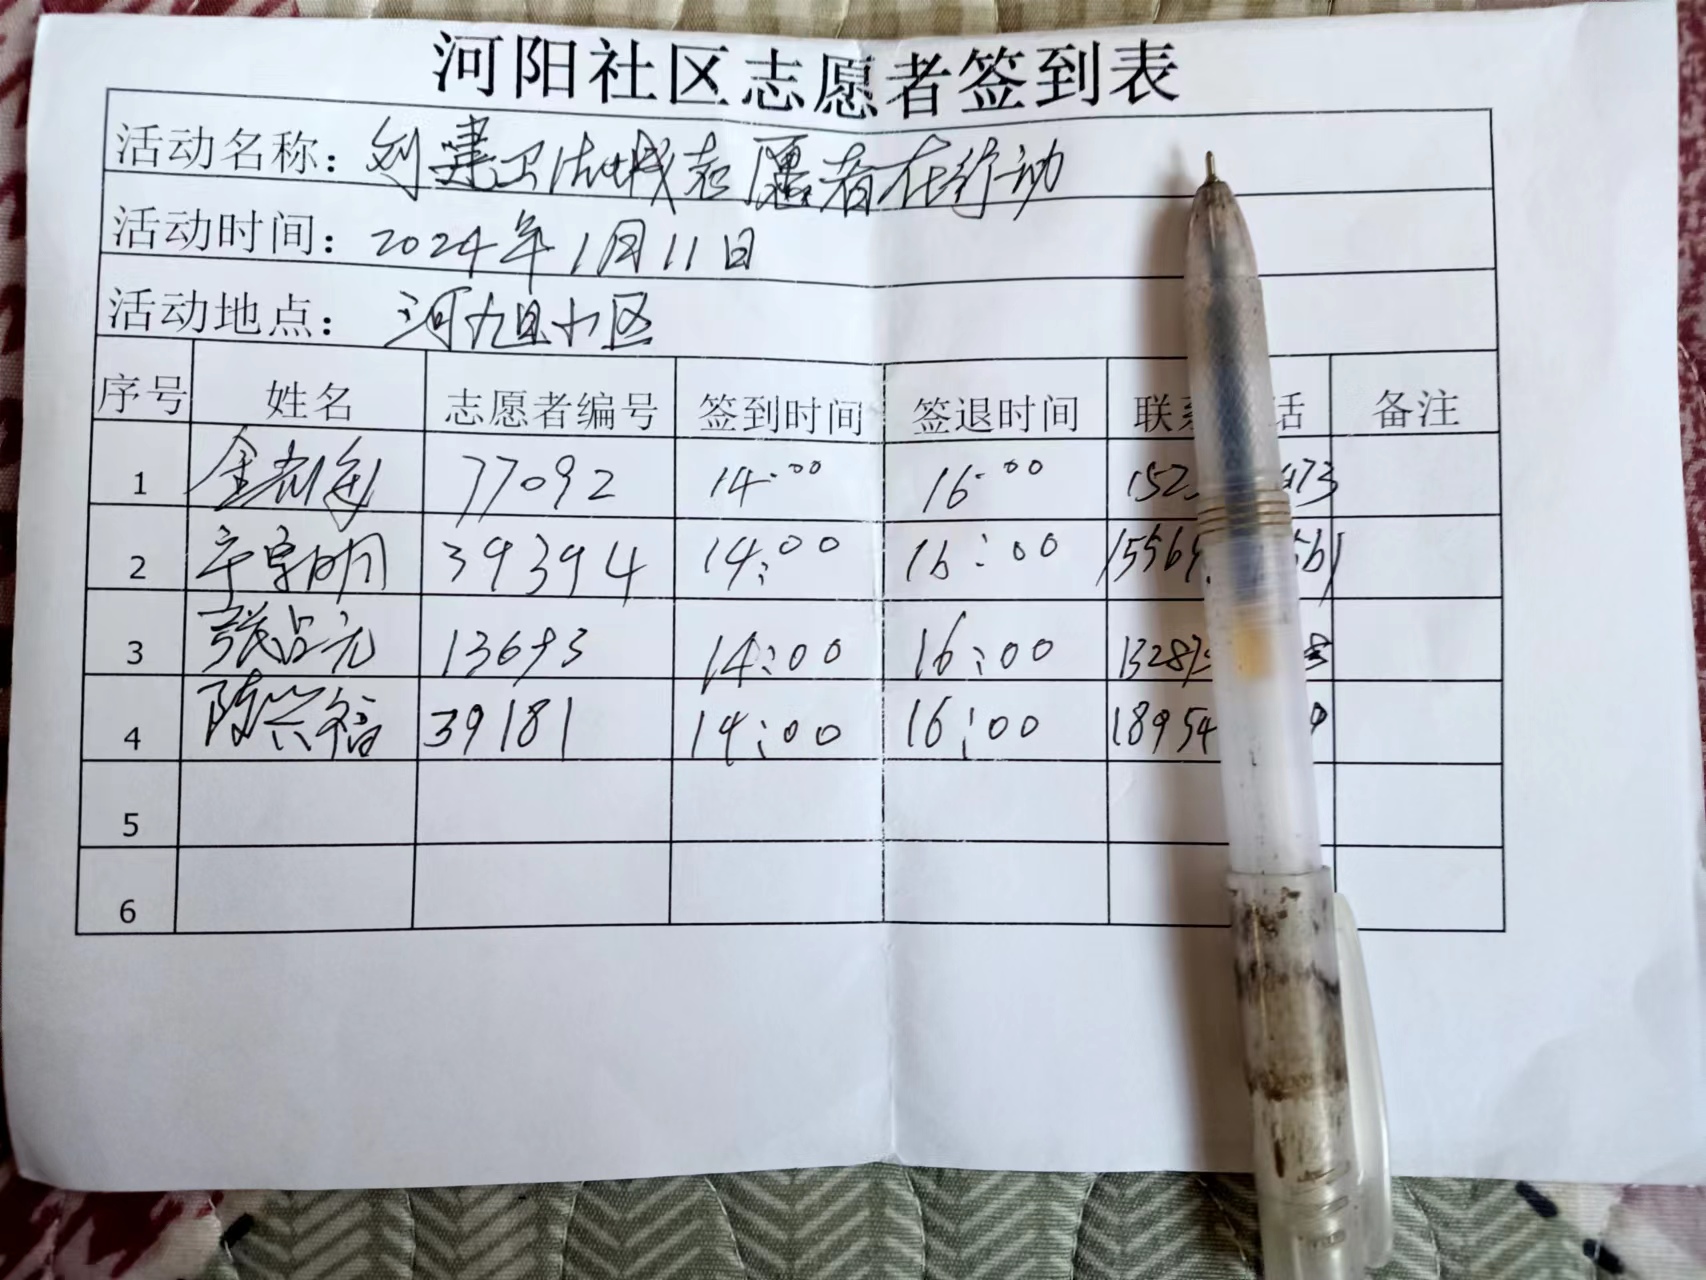 河阳社区志愿者签到表
活动名称：创建卫生城志愿者在行动
活动时间：2024年1月11日
活动地点：河旭小区
序号 姓名 志愿者编号 签到时间 签退时间 联系 话 备注
1 金 77092 14:00 16:00 152 473
2 明 39394 14:00 16:00 1556 561
3 张占元 13693 14:00 16:00 1328 8
4 陈兴福 39181 14:00 16:00 18954
5
6